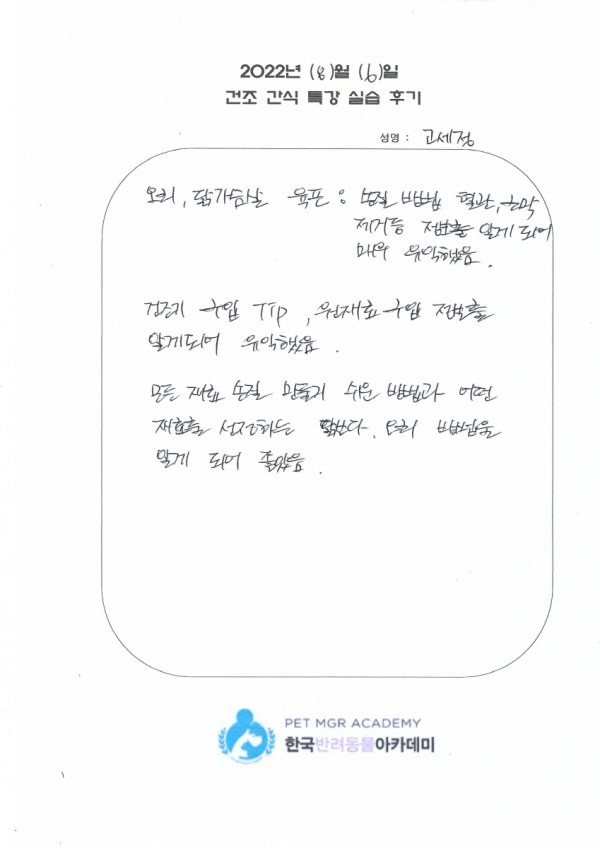 2022년 (8)월 (6)일
건조 간식 특강 실습 후기
성명 : 고세정
오리, 닭가슴살 육포 : 손질 방법, 혈관, 근막
제거등 정보를 알게 되어
매우 유익했음.
건조기 구입 Tip, 원재료 구입 정보를
알게되어 유익했음.
모든 재료 손질 만들기 쉬운 방법과 어떤
재료를 선정하는 요리 방법을
알게 되어 좋았음.
PET MGR ACADEMY
한국반려동물아카데미